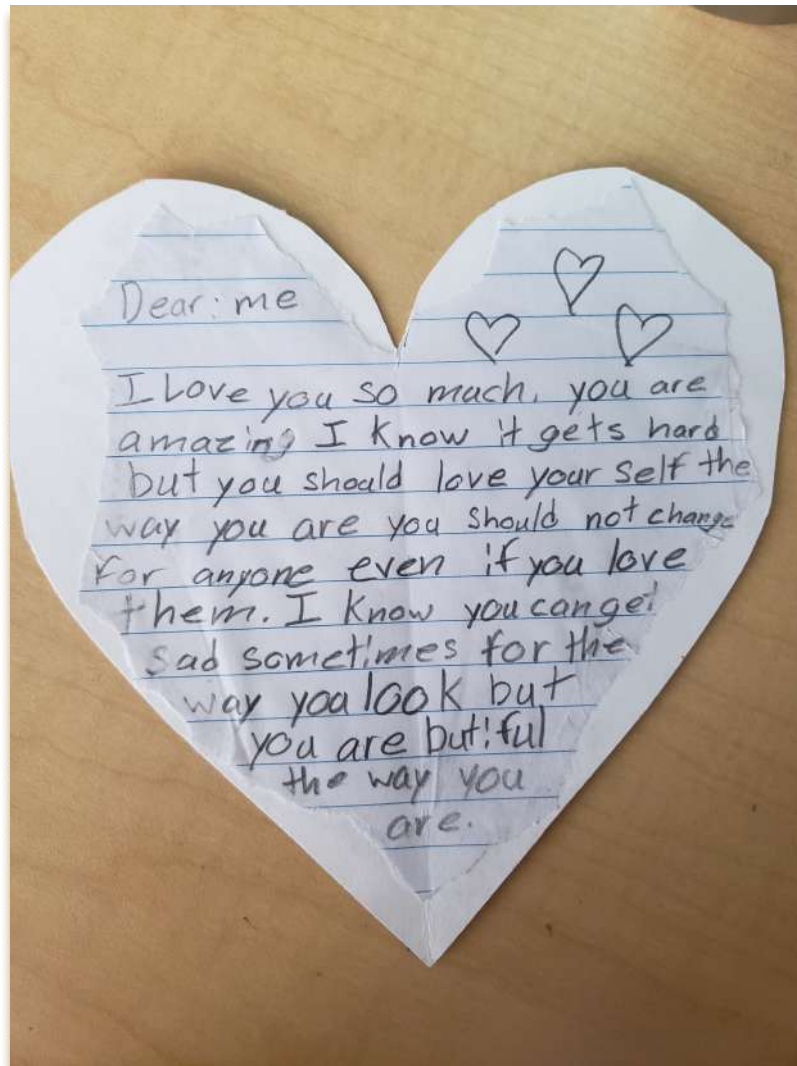 Dear: me
I Love you so mach. you are
amazing I know it gets hard
but you should love your self the
way you are you should not change
for anyone even if you love
them. I know you can get
sad sometimes for the
way you look but
you are butiful
the way you
are.